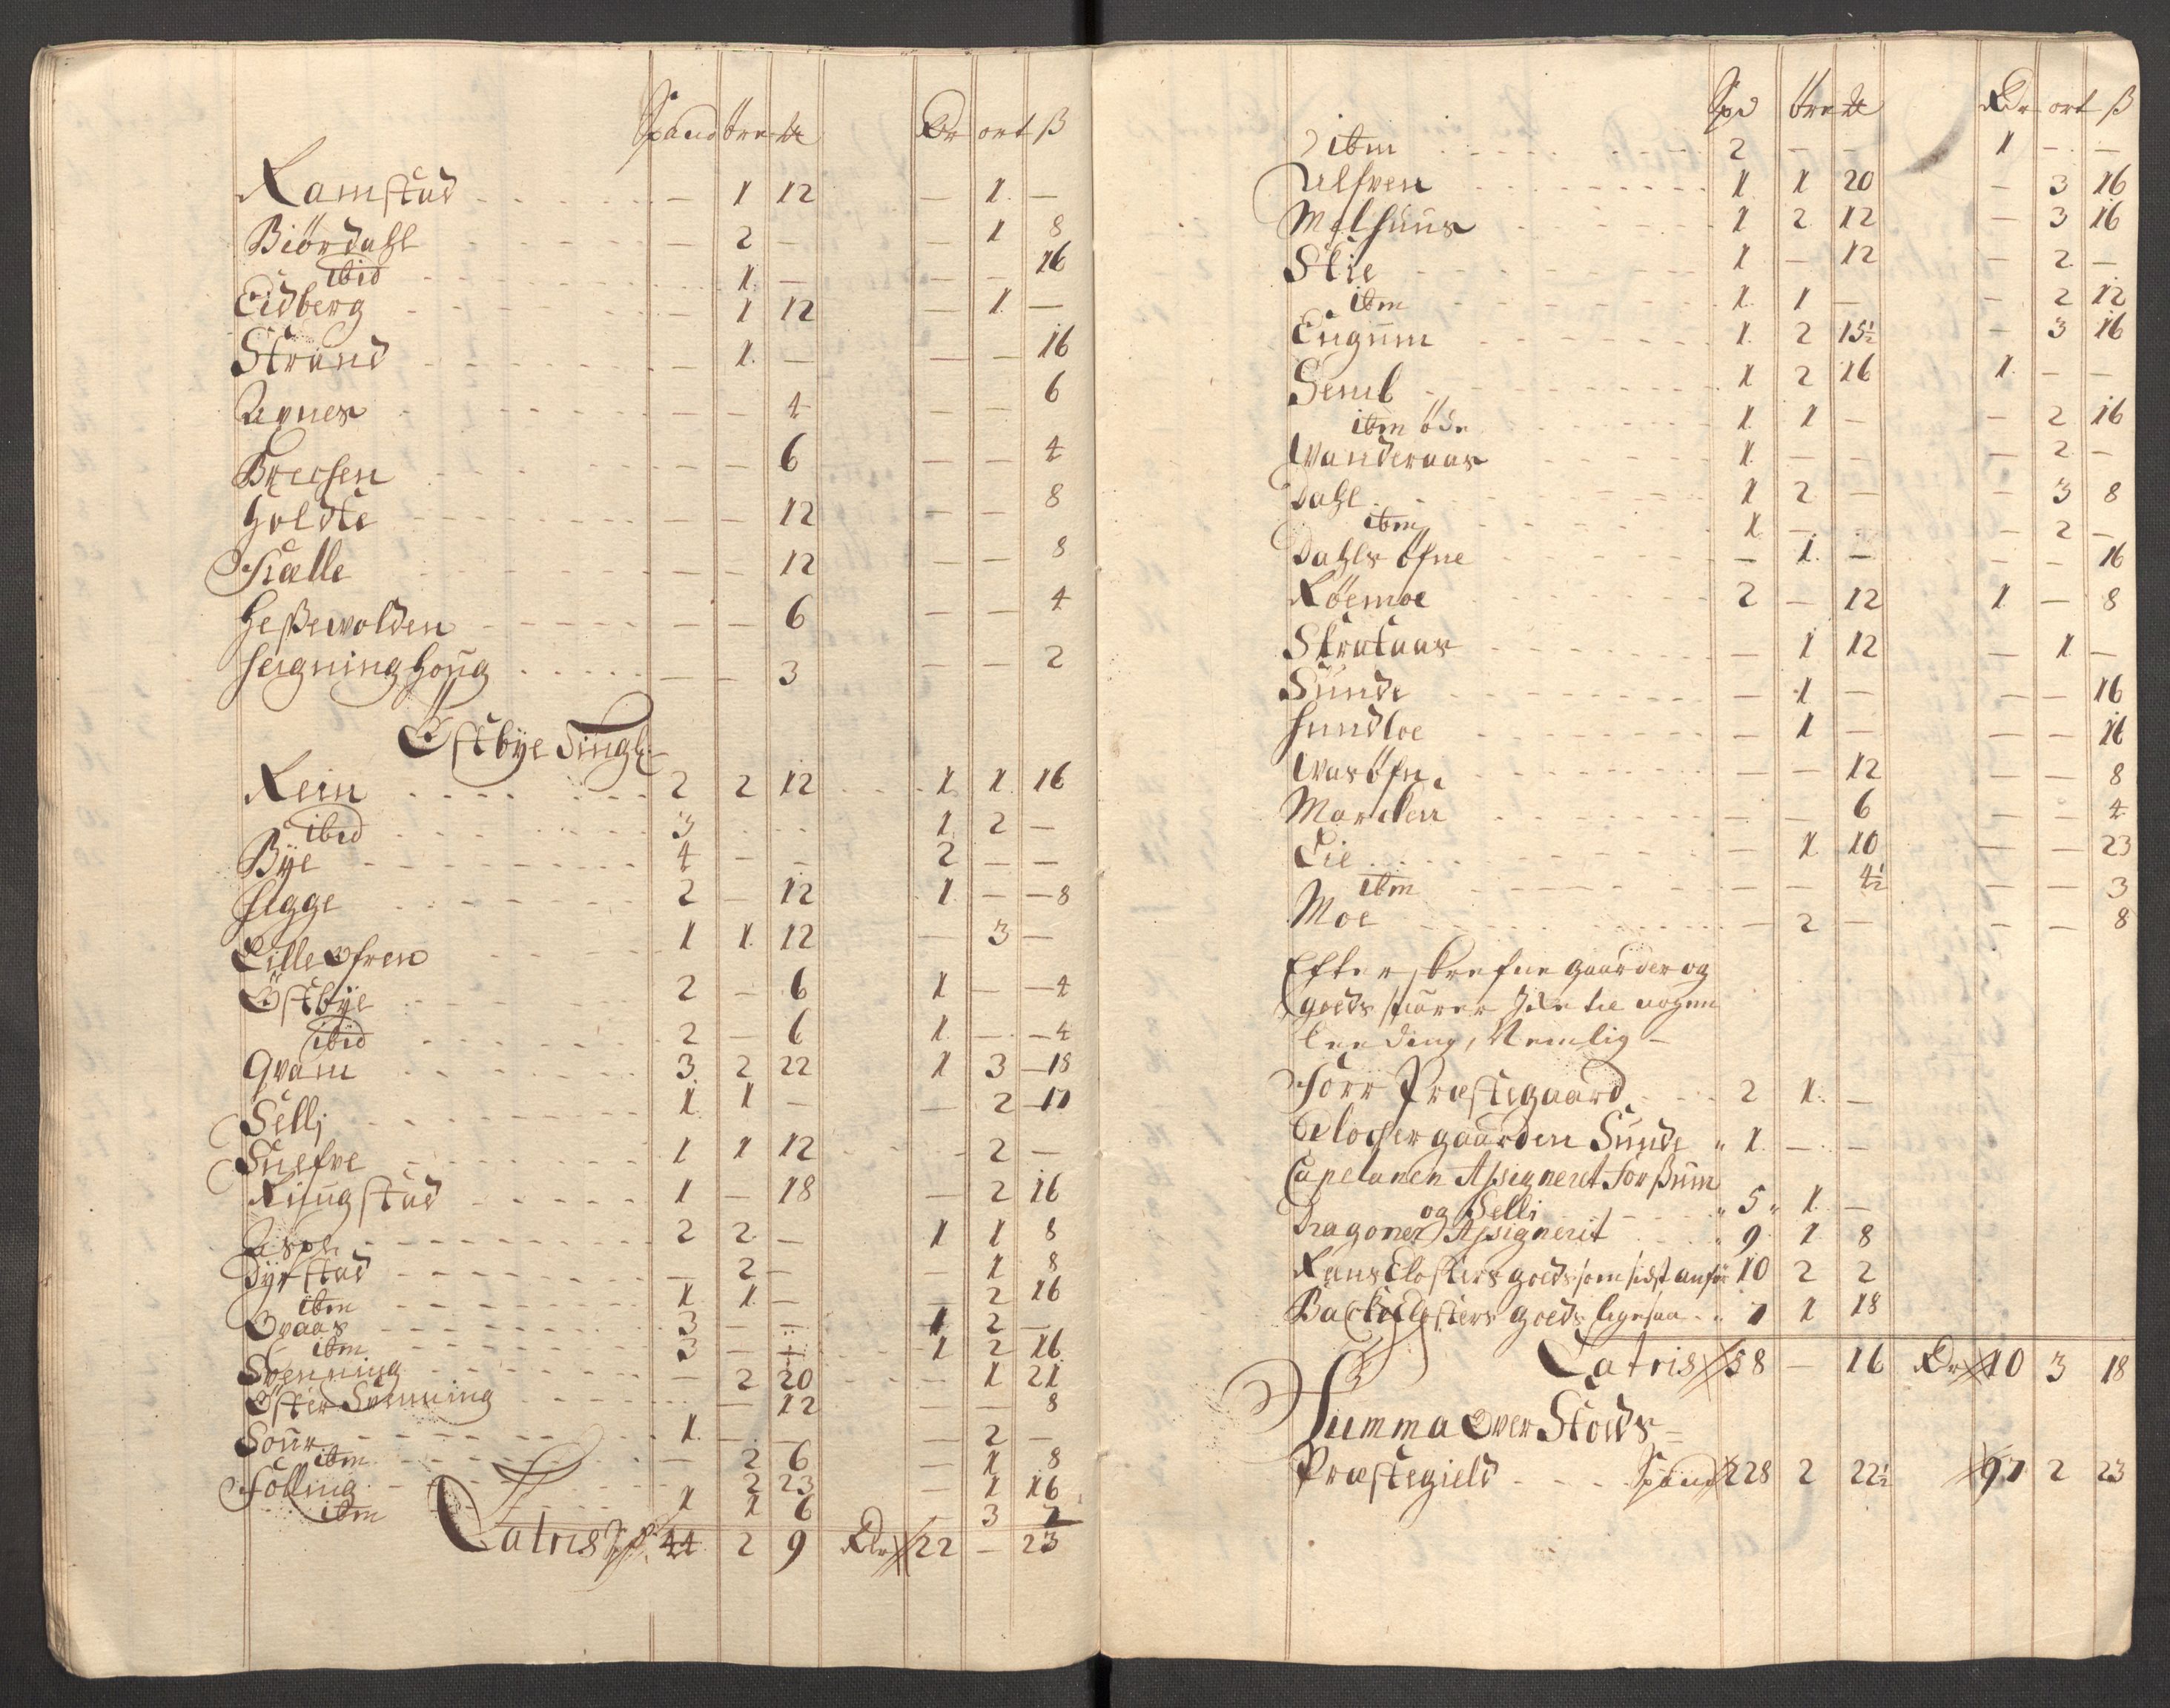 Spand öre ℔ Dr ort ß
Ramstad - 1 12 - 1 -
Biördahl - 2 - - 1 8
ibid 1 - - - 16
Eidberg - 1 12 - 1 -
Strand - 1 - - - 16
Agnes - - 4 - - 6
Brecsen - - 6 - - 4
Holdte - - 12 - - 8
Kalle - - 12 - - 8
Heßewolden - - 6 - - 4
Hegning houg - - 3 - - 2
Östbye Tingl:
Rein 2 2 12 1 1 16
ibid 3 - - 1 2 -
Bÿe 4 - - 2 - -
Hegge 2 - 12 1 - 8
Lille Ofren 1 1 12 - 3 -
Östbÿe 2 - 6 1 - 4
ibid 2 - 6 1 - 4
Qvam 3 2 22 1 3 18
Selli 1 1 - - 2 11
Suefve 1 1 12 - 2 -
Ringstad 1 - 18 - 2 16
Aspe 2 2 - 1 1 8
Dÿrstad - 2 - - 1 8
itm 1 1 - - 2 16
Ovaas 3 - - 1 2 -
itm 3 - - 1 2 16
Svenning - 2 20 - 1 21
Öster Svenning - - 12 - - 8
Sour 1 - - - 2 -
itm - 2 6 - 1 8
Fölling - 2 23 - 1 16
itm 1 1 6 - 3 2
Latris Sp 44 2 9 Rdr 22 - 23
Spd öre ℔ Rdr ort ß
itm 2 - - 1 - -
Ulfven 1 1 20 - 3 16
Melhuus 1 2 12 - 3 16
Stie 1 - 12 - 2 -
itm 1 1 - - 2 12
Eugum 1 2 15½ - 3 16
Semb 1 2 16 1 - -
itm öde 1 1 - - 2 16
Wanderaas 1 - - - 2 -
Dahl 1 2 - - 3 8
itm 1 - - - 2 -
Dahls öfne - 1 - - - 16
Röemoe 2 - 12 1 - 8
Strataas - 1 12 - 1 -
Sunde - 1 - - - 16
Hundloe - 1 - - - 16
Wasöfne - - 12 - - 8
Marchen - - 6 - - 4
Lie - 1 10 - - 23
itm - - 4½ - - 3
Moe - 2 - - - 8
Efterskrefne gaarder og
goeds suarer Icke til nogen
Leeding, Nemlig -
För Præstegaard 2 1 -
Clocher gaarden Sunde 1 - -
Capelanen Assigneret For ßum
og Selli 5 1 -
Dragoner Assignerit 9 1 8
Reins Closters goeds som sidst anför 10 2 2
Bache Closters goeds ligesaa 7 1 18
Latris 58 - 16 Rdr 10 3 18
Summa Over Stods
Præstegield Spand 228 2 22½ 97 2 23